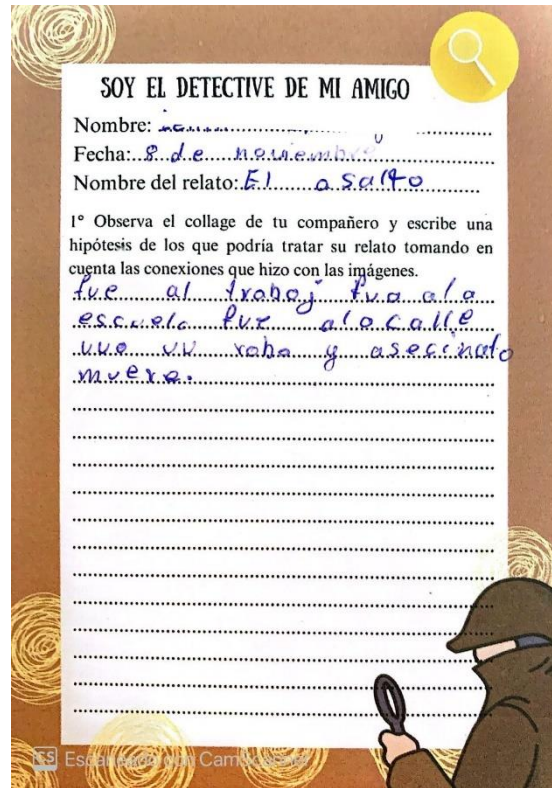 SOY EL DETECTIVE DE MI AMIGO
Nombre:
Fecha: 8 de noviembre
Nombre del relato: El asalto
1º Observa el collage de tu compañero y escribe una
hipótesis de los que podría tratar su relato tomando en
cuenta las conexiones que hizo con las imágenes.
fue al trabaj fua ala
escuela fue ala calle
uvo uu robo y asecinato
muere.
CS Escaneado con CamScanner